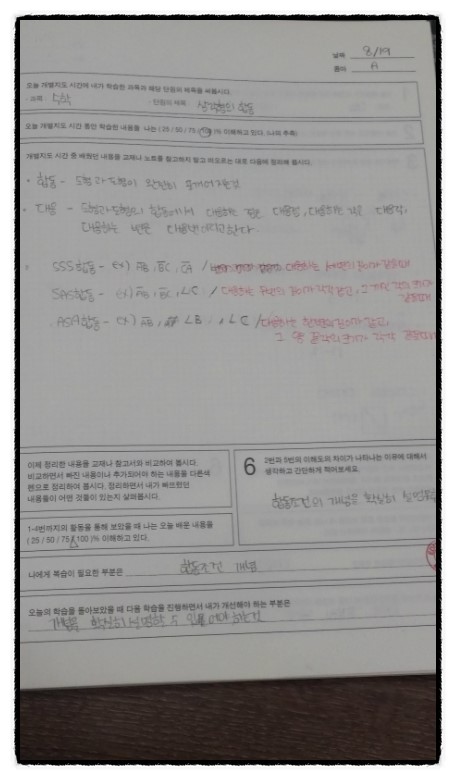 날짜 8/19
이름 A
오늘 개별지도 시간에 내가 학습한 과목과 해당 단원의 제목을 써봅시다.
· 과목 : 수학 · 단원의 제목 : 삼각형의 합동
오늘 개별지도 시간 동안 학습한 내용을 나는 ( 25 / 50 / 75 / 100 )% 이해하고 있다. (나의 추측)
개별지도 시간 중 배웠던 내용을 교재나 노트를 참고하지 않고 떠오르는 대로 다음에 정리해 봅시다.
· 합동 - 도형과 도형이 완전히 포개어지는것
· 대응 - 도형과 도형의 합동에서 대응하는 점은 대응점, 대응하는 각은 대응각,
대응하는 변은 대응변이라고 한다.
SSS합동 - ex) AB, BC, CA / 대응하는 세변의 길이가 같을때
SAS합동 - ex) AB, BC, ∠C / 대응하는 두변의 길이가 각각 같고, 그 끼인 각의 크기가
같을때
ASA합동 - ex) AB, ∠B, ∠C / 대응하는 한변의 길이가 같고,
그 양 끝각의 크기가 각각 같을때
이제 정리한 내용을 교재나 참고서와 비교하여 봅시다.
비교하면서 빠진 내용이나 추가되어야 하는 내용을 다른색
펜으로 정리하여 봅시다. 정리하면서 내가 빠뜨렸던
내용들이 어떤 것들이 있는지 살펴봅시다.
6 2번과 5번의 이해도의 차이가 나타나는 이유에 대해서
생각하고 간단하게 적어보세요.
합동조건의 개념을 확실히 설명
1-4번까지의 활동을 통해 보았을 때 나는 오늘 배운 내용을
( 25 / 50 / 75 / 100 )% 이해하고 있다.
나에게 복습이 필요한 부분은 합동조건 개념
오늘의 학습을 돌아보았을 때 다음 학습을 진행하면서 내가 개선해야 하는 부분은
개념을 확실히 설명할 수 있을